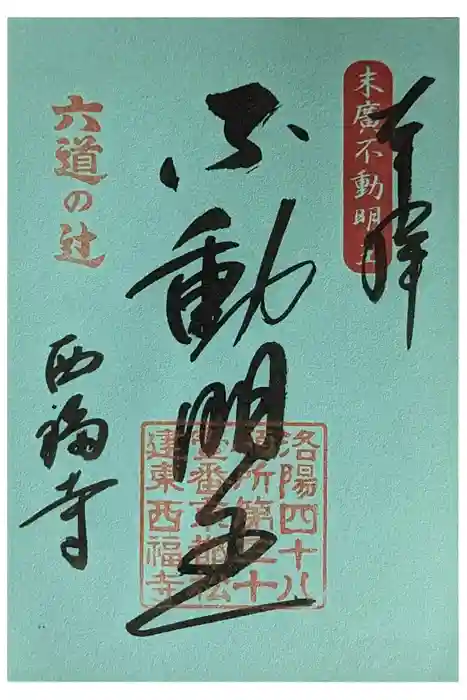 奉拝
末廣不動明王
不動明王
洛陽四十八
願所第十
壹番京都松
東西福寺
六道の辻
西福寺